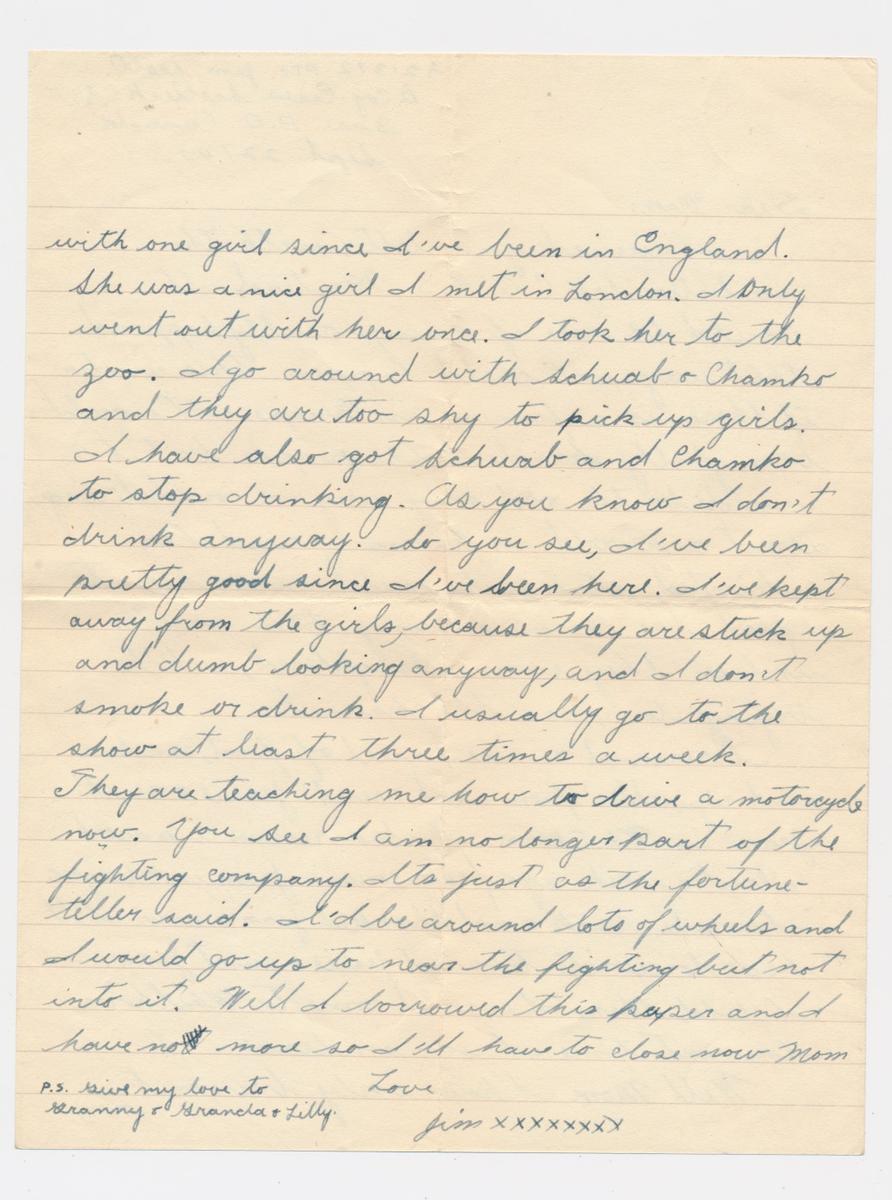 with one girl since I've been in England.
She was a nice girl I met in London. I Only
went out with her once. I took her to the
zoo. I go around with Schwab & Chamko
and they are too shy to pick up girls.
I have also got Schwab and Chamko
to stop drinking. As you know I don't
drink anyway. So you see, I've been
pretty good since I've been here. I've kept
away from the girls, because they are stuck up
and dumb looking anyway, and I don't
smoke or drink. I usually go to the
show at least three times a week.
They are teaching me how to drive a motorcycle
now. You see I am no longer part of the
fighting company. Its just as the fortune-
teller said. I'd be around lots of wheels and
I would go up to near the fighting but not
into it. Well I borrowed this paper and I
have no more so I'll have to close now Mom
Love
Jim xxxxxxxx
P.S. Give my love to
Granny & Granda & Lilly.